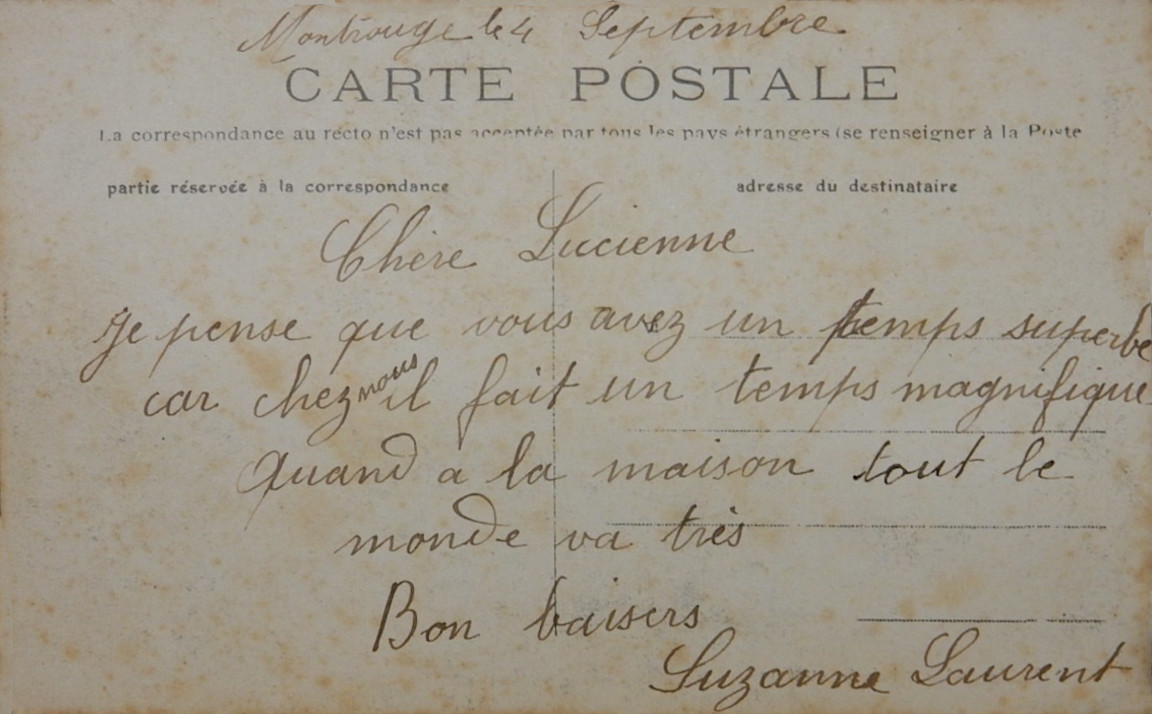 Montrouge le 4 Septembre
CARTE POSTALE
La correspondance au recto n'est pas acceptée par tous les pays étrangers (se renseigner à la Poste
partie réservée à la correspondance
adresse du destinataire
Chère Lucienne
Je pense que vous avez un temps superbe
car chez nous il fait un temps magnifique
Quand a la maison tout le
monde va très
Bon baisers
Suzanne Laurent